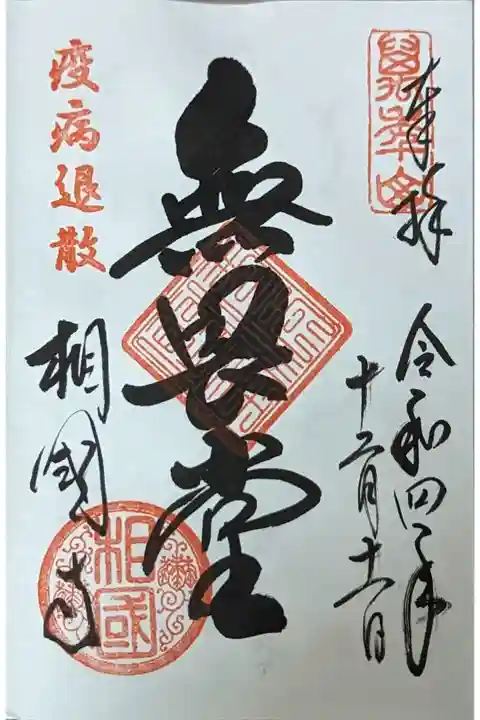 萬年山
奉拝
令和四年
十二月十一日
無畏堂
疫病退散
相國寺
相國